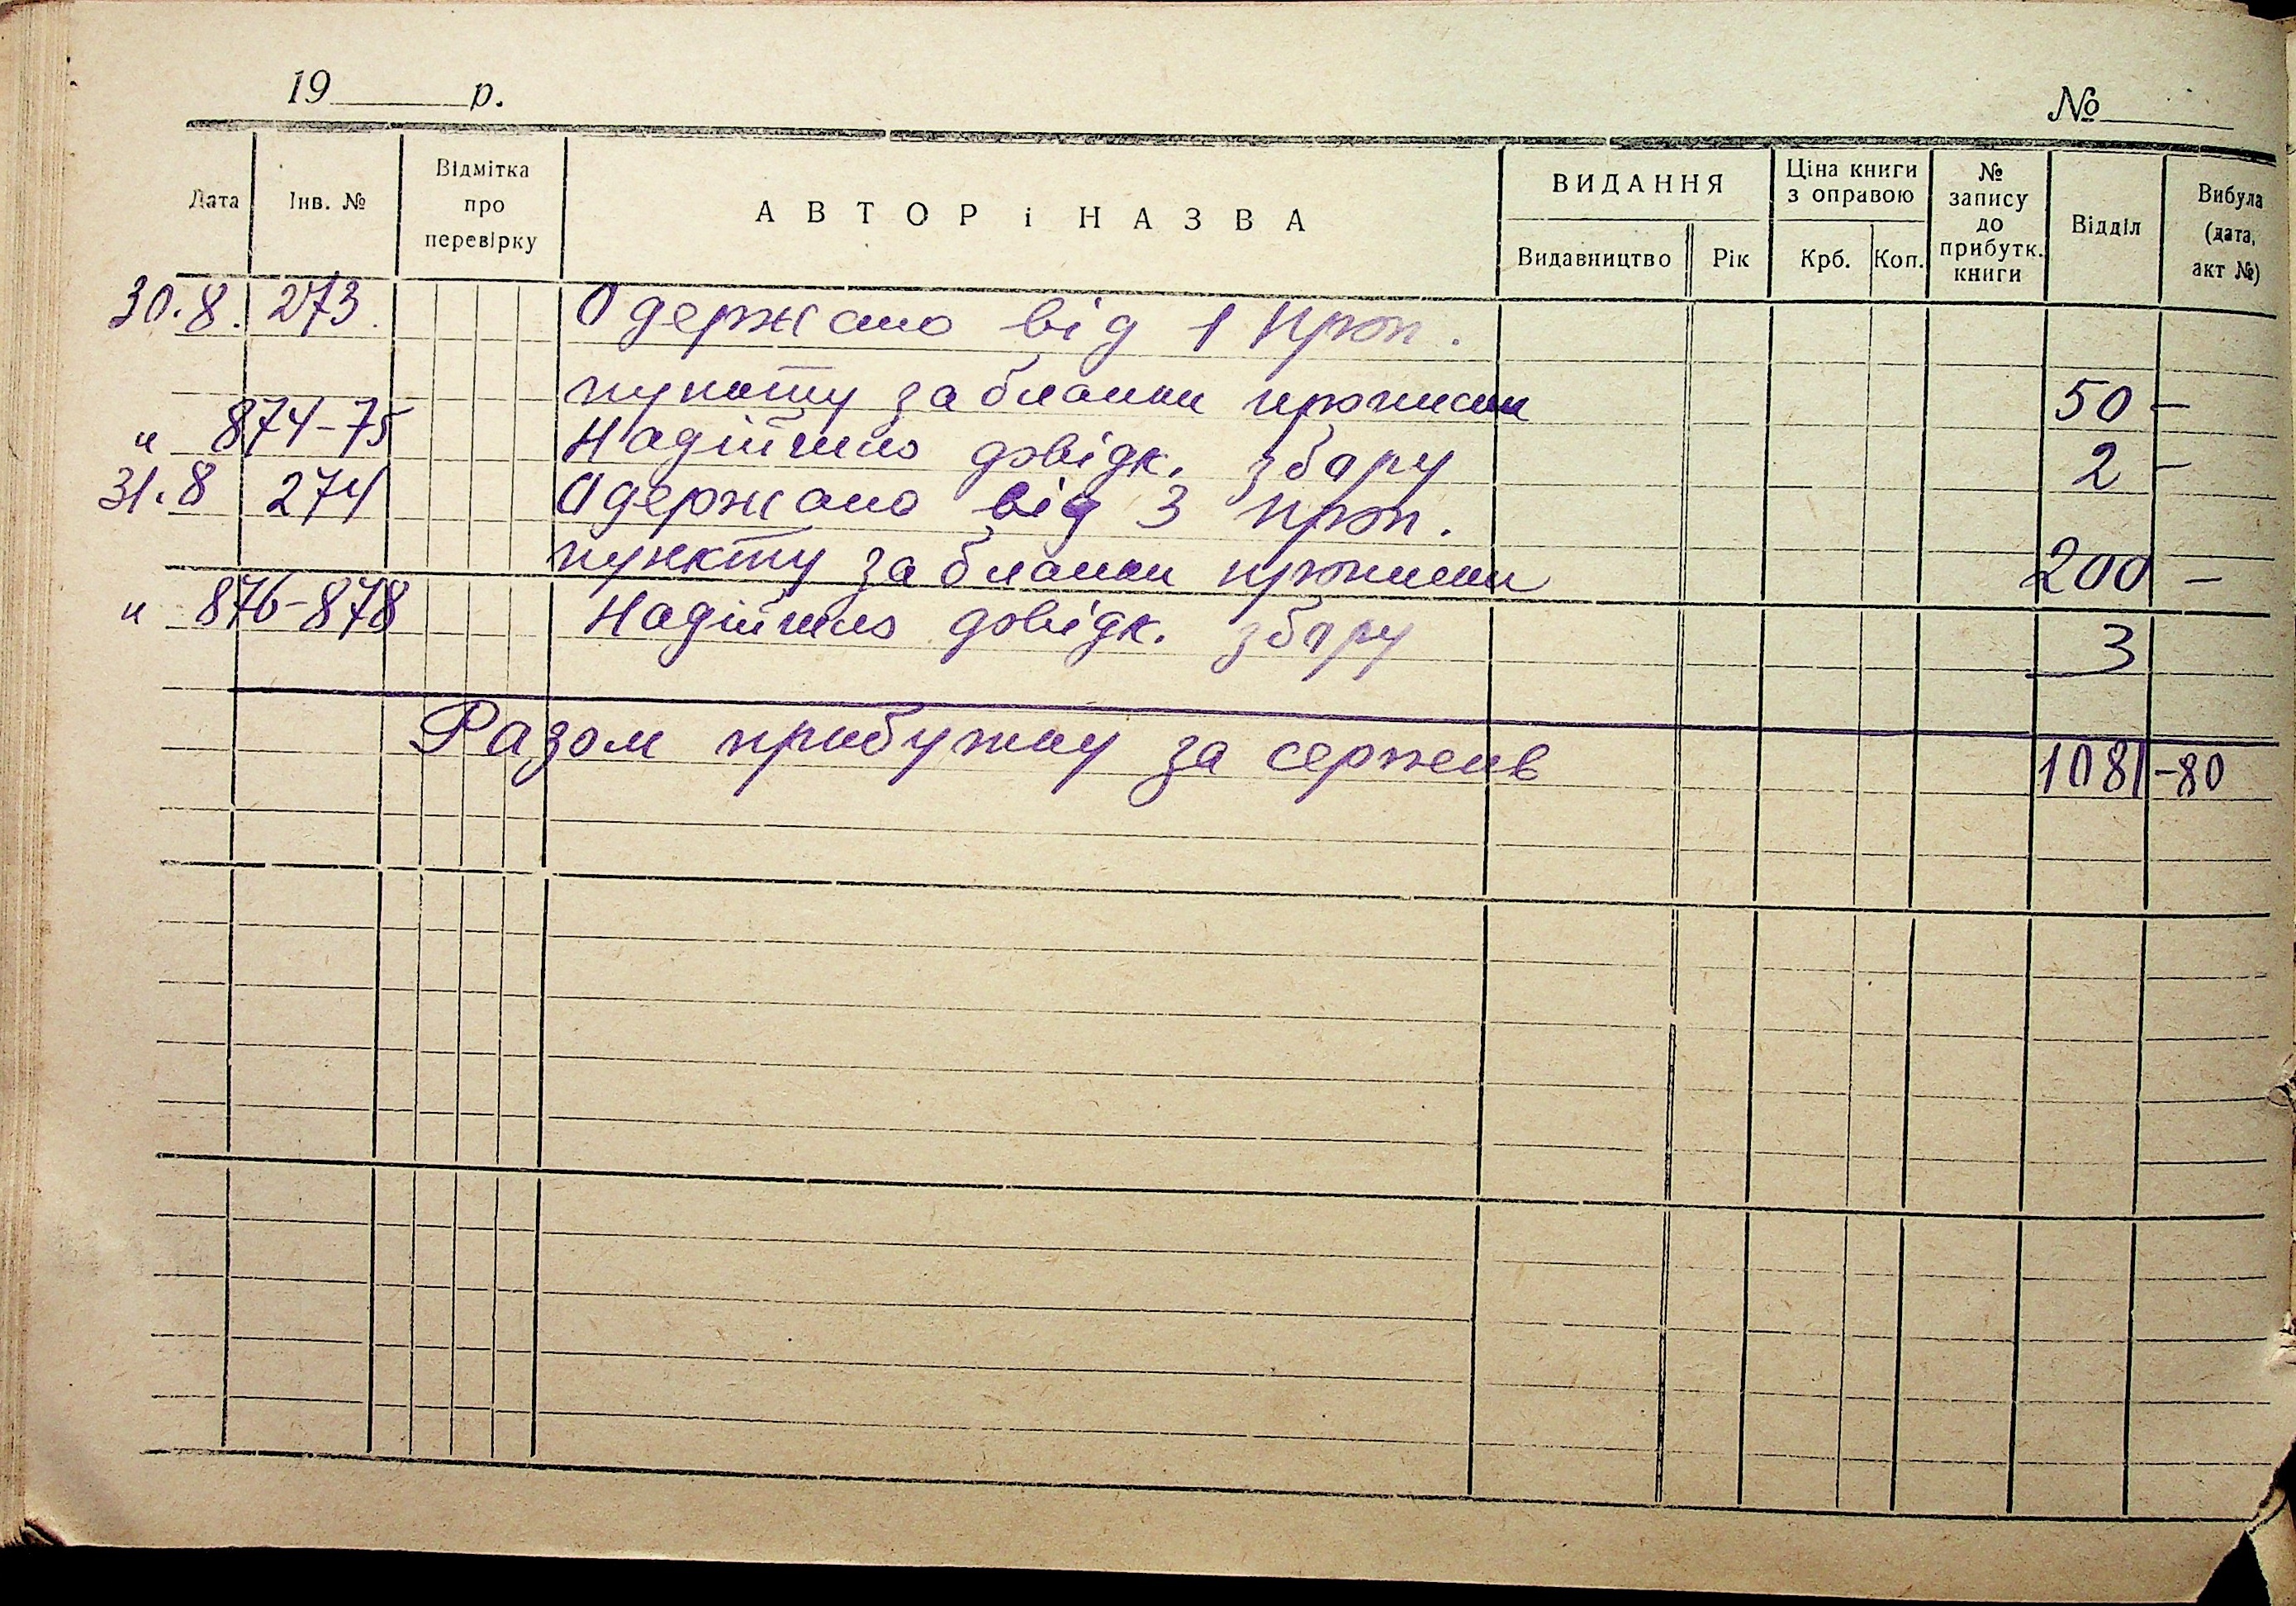 19 р.
№
Дата
Інв. №
Відмітка
про
перевірку
АВТОР і НАЗВА
ВИДАННЯ
Видавництво
Рік
Ціна книги
з оправою
Крб.
Коп.
№
запису
до
прибутк.
книги
Відділ
Вибула
(дата,
акт №)
30.8. 273. Одержано від 1 проп.
пункту за бланки прописки 50 –
" 874-75 Надійшло довідк. збору 2 –
31.8 274 Одержано від 3 проп.
пункту за бланки прописки 200 –
" 876-878 Надійшло довідк. збору 3
Разом прибутку за серпень 1081-80